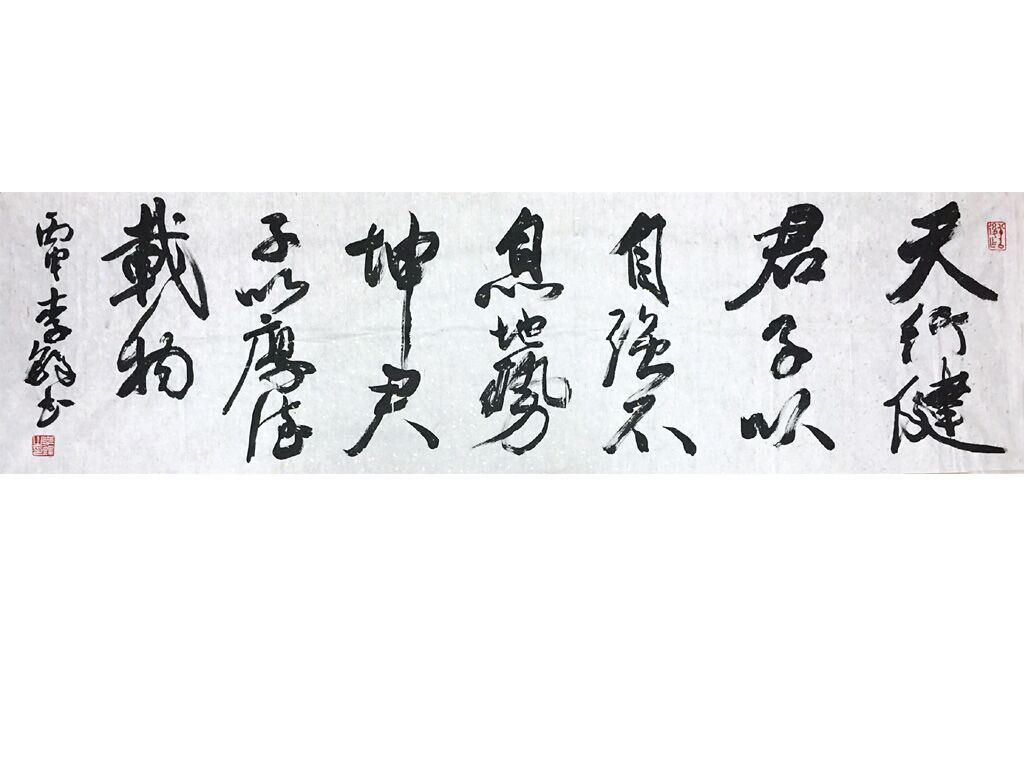 天行健
君子以
自强不
息地勢
坤君
子以厚德
載物
丙申李
書